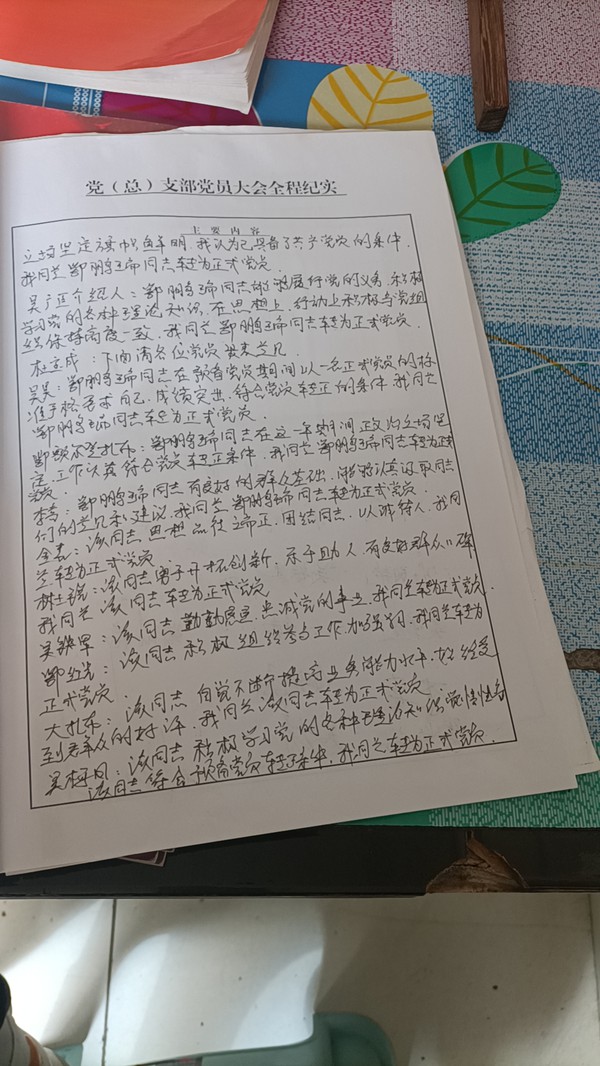 党（总）支部党员大会全程纪实
主要内容
立场坚定旗帜鲜明，我认为已具备了共产党员的条件，
我同意鄂鹏席同志转为正式党员
介绍人：鄂鹏席同志能履行党的义务，积极
学习党的各种理论知识，在思想上，行动上积极与党组
织保持高度一致，我同意鄂鹏席同志转为正式党员
下面请各位党员发表意见
吴昊：鄂鹏席同志在预备党员期间以一名正式党员的标
准严格要求自己，成绩突出，符合党员转正的条件，我同意
鄂鹏席同志转为正式党员。
鄂席同志在这一年期间政治立场坚
定，工作认真符合党员转正条件，我同意鄂鹏席同志转为正式
党员。
李：鄂鹏席同志有良好的群众基础，能够认真听取同志
们的意见和建议，我同意鄂鹏席同志转为正式党员。
金：该同志思想品行端正，团结同志，以诚待人，我同
意转为正式党员
该同志勇于开拓创新，乐于助人，有良好群众口碑
我同意该同志转为正式党员
吴铁军：该同志勤勤恳恳，忠诚党的事业，我同意转为正式党员
鄂红光：该同志积极组织参与工作，加强，我同意转为
正式党员
大扎布：该同志自觉不断提高业务能力水平，始终受
到群众的好评，我同意该同志转为正式党员
吴梅月：该同志积极学习党的各种理论知识，
该同志符合预备党员转正条件，我同意转为正式党员。